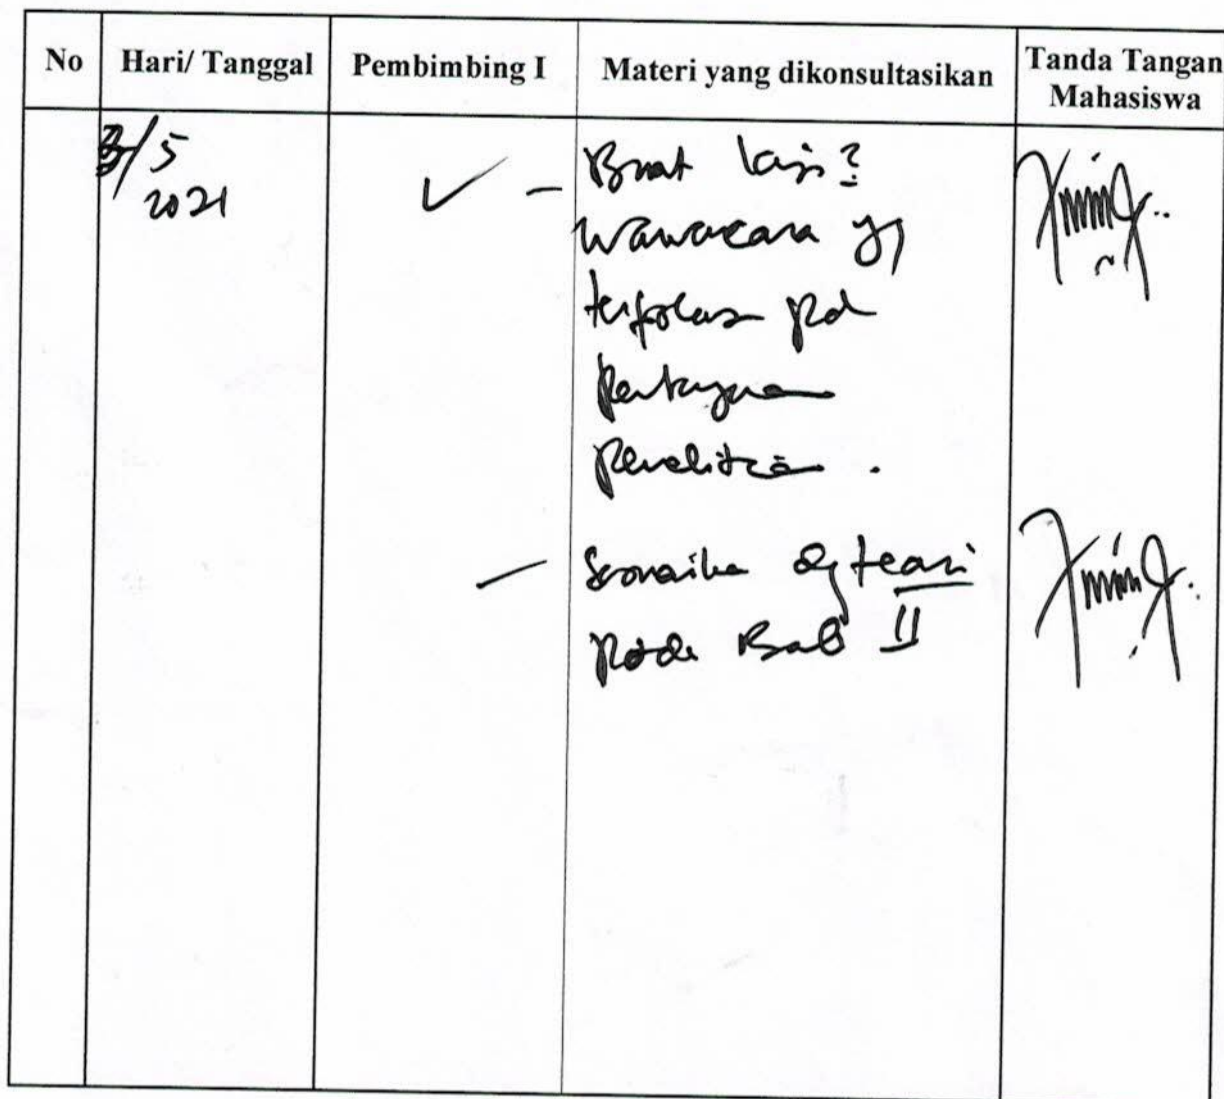 No Hari/ Tanggal Pembimbing I Materi yang dikonsultasikan Tanda Tangan Mahasiswa
3/5
2021
- Buat
wawancara yg
pd
pertanyaan
penelitian.
- Sesuaika dg teori
pada Bab II